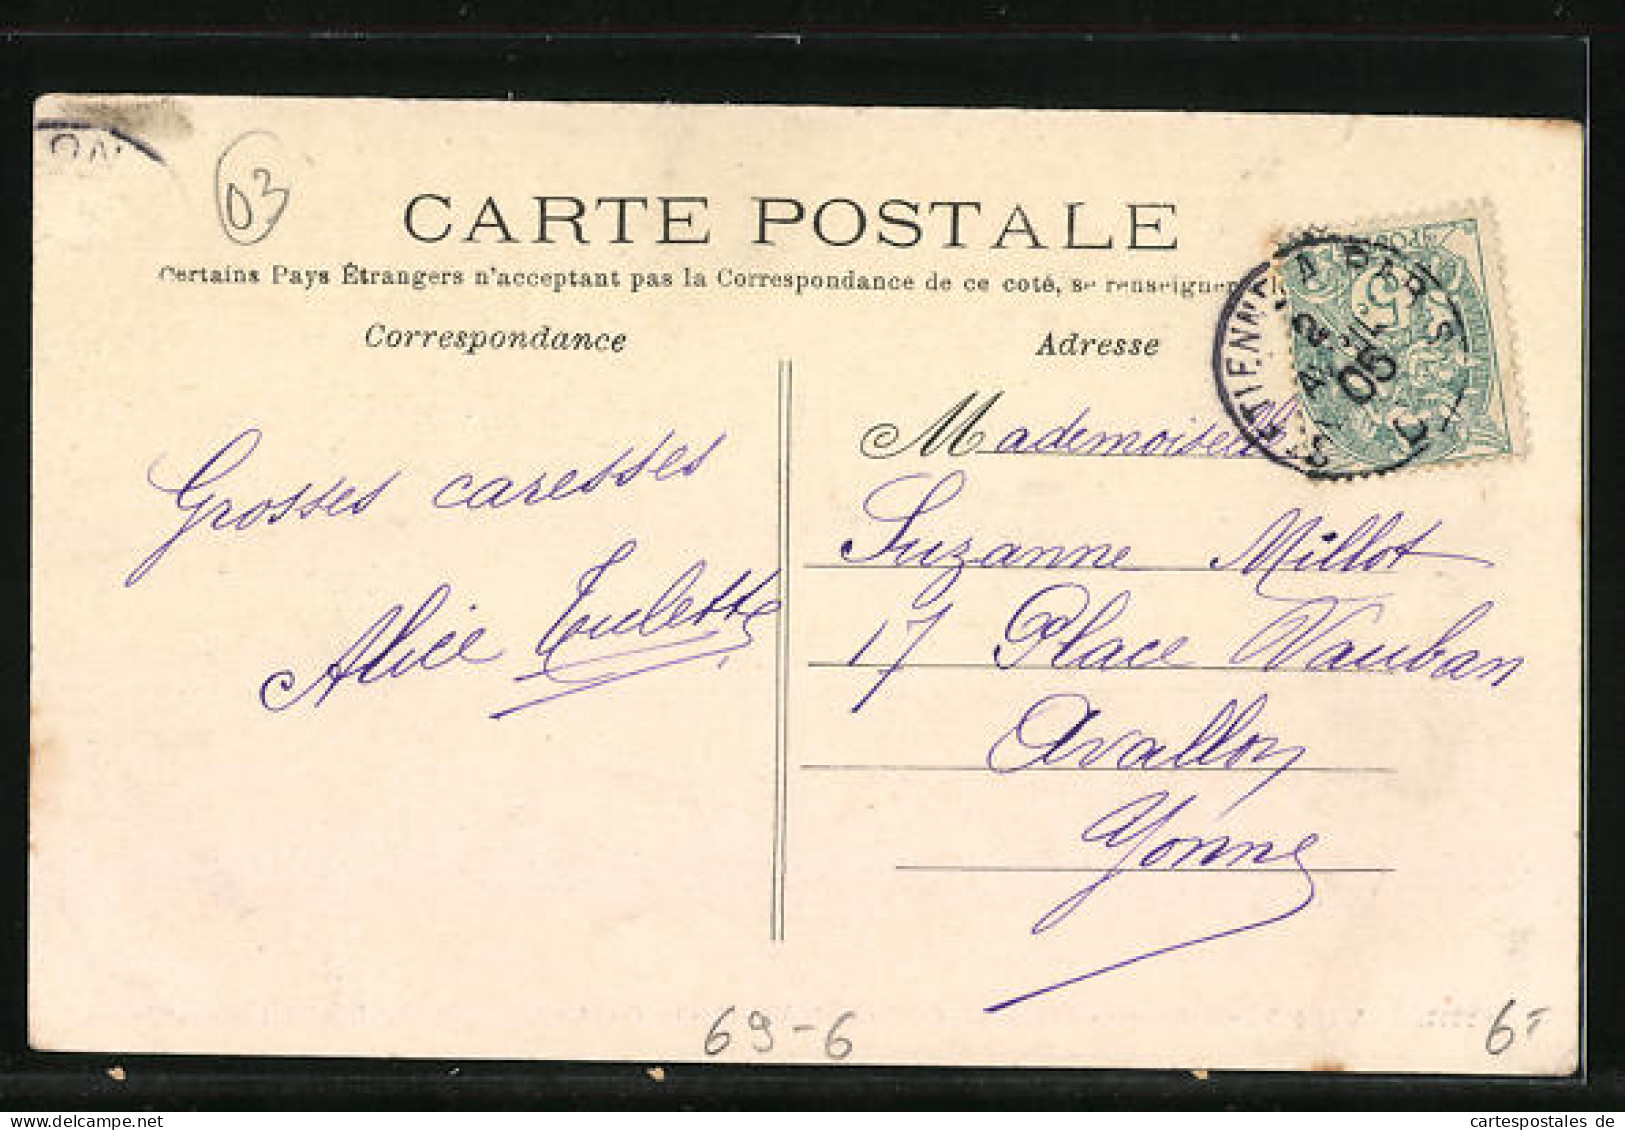 03
CARTE POSTALE
Certains Pays Étrangers n'acceptant pas la Correspondance de ce coté, se renseigner
Correspondance
Adresse
Grosses caresses
Alice Tulette
Mademoiselle
Suzanne Millot
17 Place Vauban
Avallon
Yonne
ST ETIENNE A
05
69-6
6
cartespostales de